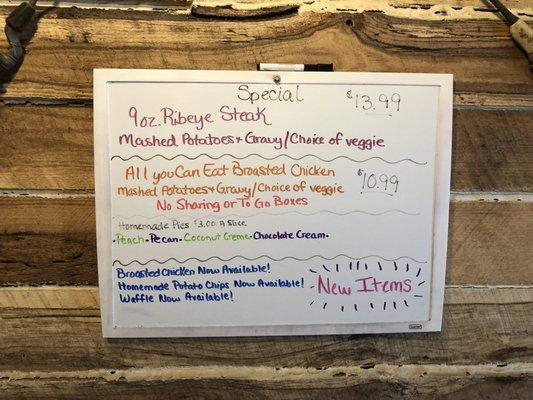 Special
$13.99
9oz. Ribeye Steak
Mashed Potatoes + Gravy/Choice of veggie
All you Can Eat Broasted Chicken
Mashed Potatoes + Gravy/Choice of veggie
$10.99
No Sharing or To Go Boxes
Homemade Pies $3.00 A Slice
·Peach·Pecan·Coconut Creme·Chocolate Cream·
Broasted Chicken Now Available!
Homemade Potato Chips Now Available!
Waffle Now Available!
New Items